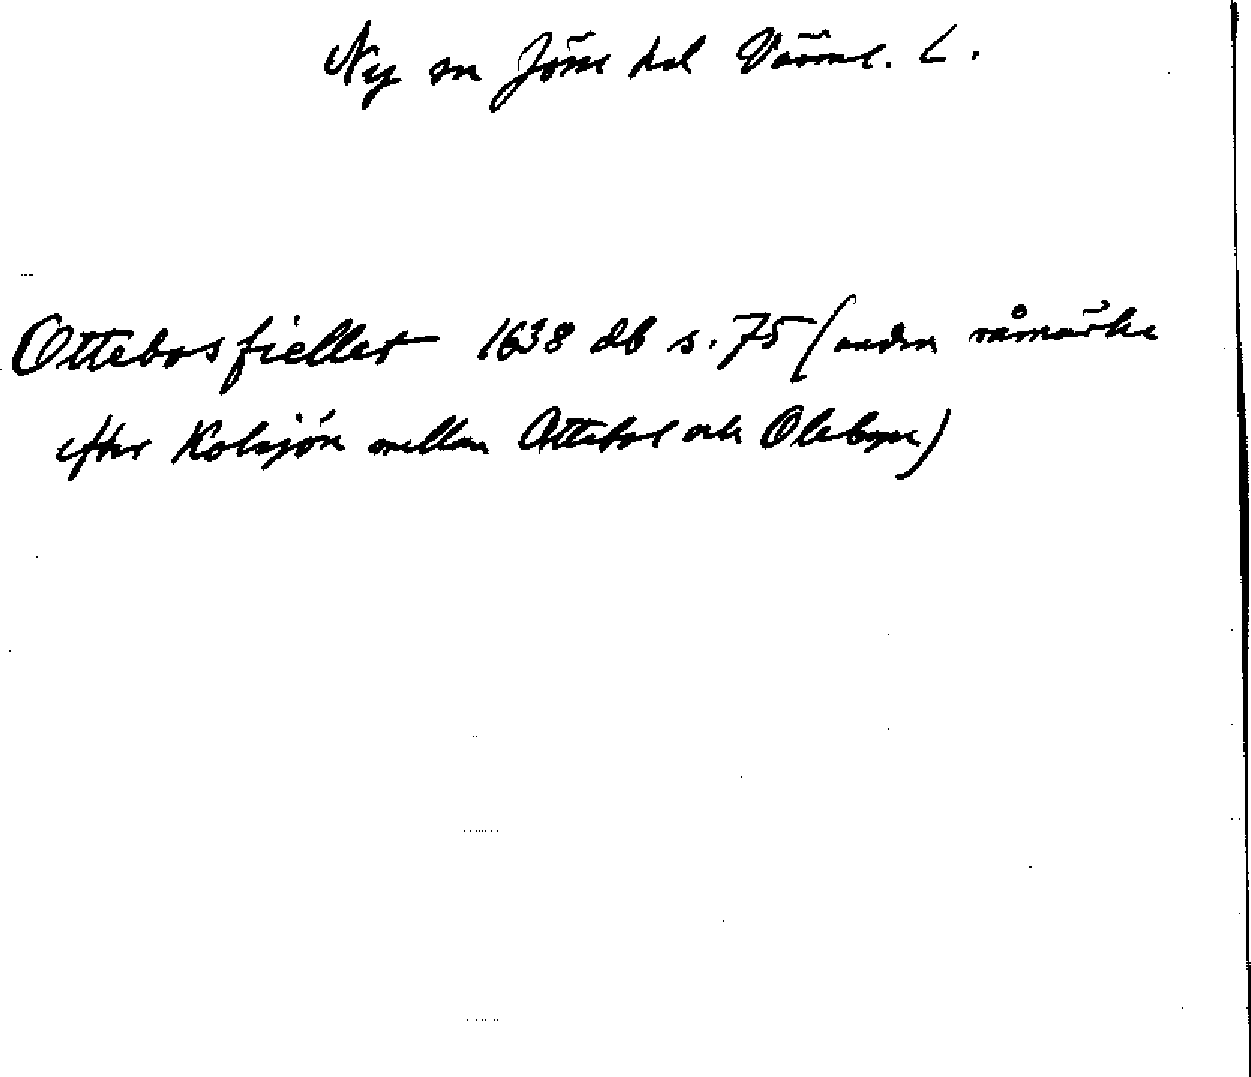 Ny sn Jösse hd Värml. L.
Ottebosfiellet 1638 db s. 75 (andra råmärke
efter Kolsjön mellan Ottebol och Olebyn)